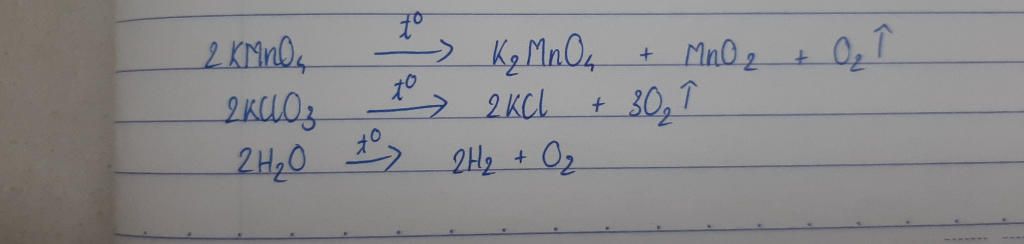 2KMnO₄ —t⁰→ K₂MnO₄ + MnO₂ + O₂↑
2KClO₃ —t⁰→ 2KCl + 3O₂↑
2H₂O —t⁰→ 2H₂ + O₂